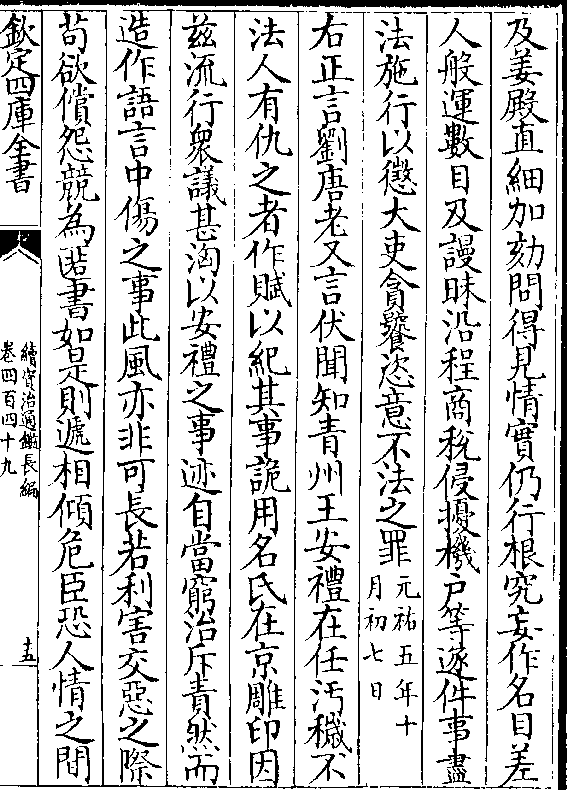 及姜殿直細加劾問得見情實仍行根究妄作名目差
人般運數目及謾昧沿程商稅侵擾機戸等逐件事盡
法施行以懲大吏貪饕恣意不法之罪元祐五年十
月初七日
右正言劉唐老又言伏聞知青州王安禮在任汚穢不
法人有仇之者作賦以紀其事詭用名氏在京雕印因
兹流行衆議甚洶以安禮之事迹自當窮治斥責然而
造作語言中傷之事此風亦非可長若利害交惡之際
苟欲償怨競為匿書如是則遞相傾危臣恐人情之間
欽定四庫全書
續資治通鑑長編
卷四百四十九
十五